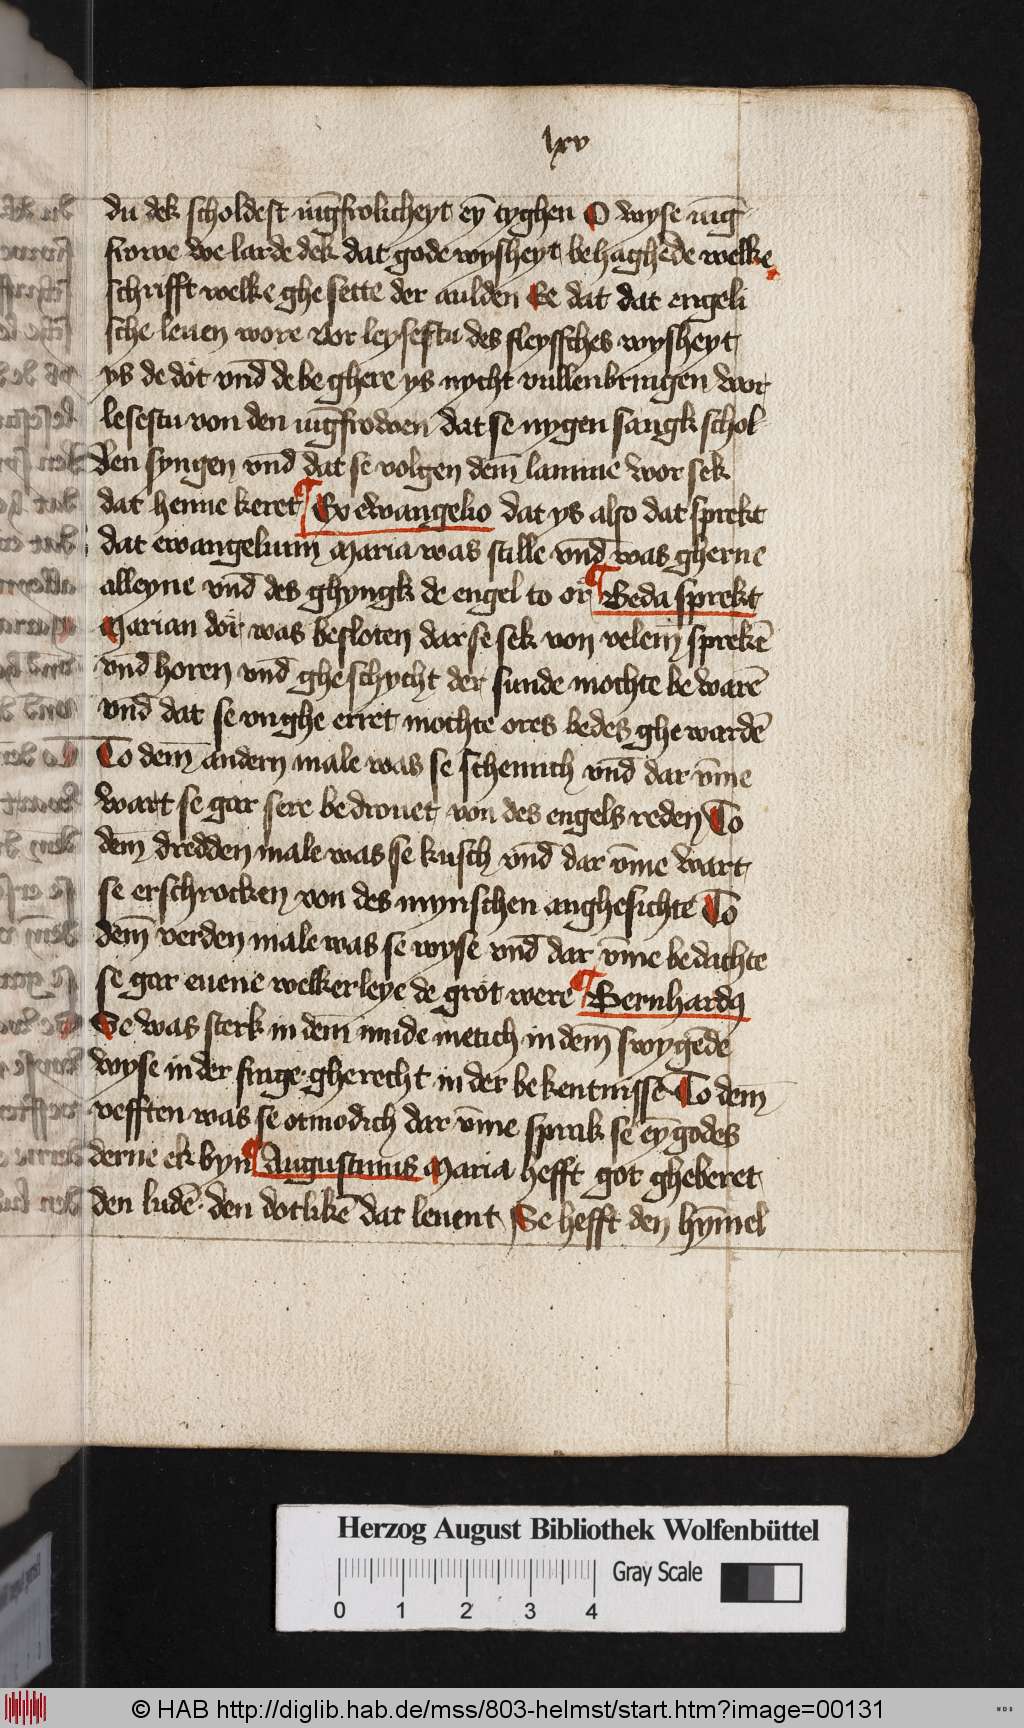 lxv
du dek scholdest iūgfrolicheyt eȳ tyghen O wyse iūg
frowe we larde dek dat gode wysheyt behaghede welke
schrifft welke ghesette der aulden Ee dat dat engeli
sche leuen wore vor leysestu des fleysches wysheyt
ys de dot vnd de beghere ys nycht vullenbringen woor
lesestu von den iūgfrowen dat se nygen sangk schol
den syngen vnd dat se volgen dem lamme wor sek
dat henne keret Ex ewangelio dat ys also dat sprekt
dat ewangelium Maria was stille vnd was gherne
alleyne vnd des ghyngk de engel to or Beda sprekt
Marian dör was besloten dar se sek von velem sprekē
vnd horen vnd gheschycht der sunde mochte bewarē
vnd dat se vnghe erret mochte ores bedes ghe wardē
To dem andern male was se schemich vnd dar v̄me
wart se gar sere bedrouet von des engels reden To
dem dredden male was se kusch vnd dar v̄me wart
se erschrocken von des mynschen anghesichte To
dem verden male was se wyse vnd dar v̄me bedachte
se gar euene welkerleye de grot were Bernhardꝰ
Se was sterk in dem mude metich in dem swygēde
wyse in der frage gherecht in der bekentnisse To dem
vefften was se otmodich dar v̄me sprak se eȳ godes
derne ek byn Augustinus Maria hefft got gheberet
den ludē den dotlikē dat leuent Se hefft den hȳmel
Herzog August Bibliothek Wolfenbüttel
Gray Scale
0 1 2 3 4
© HAB http://diglib.hab.de/mss/803-helmst/start.htm?image=00131